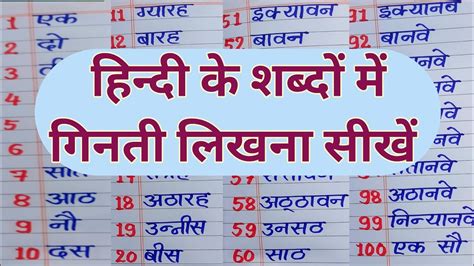 1 एक
2 दो
8 आठ
9 नौ
10 दस
ग्यारह
12 बारह
18 अठारह
19 उन्नीस
20 बीस
51 इक्यावन
52 बावन
58 अठ्ठावन
59 उनसठ
60 साठ
91 इक्यानवे
92 बानवे
98 अठानवे
99 निन्यानवे
100 एक सौ
हिन्दी के शब्दों में
गिनती लिखना सीखें